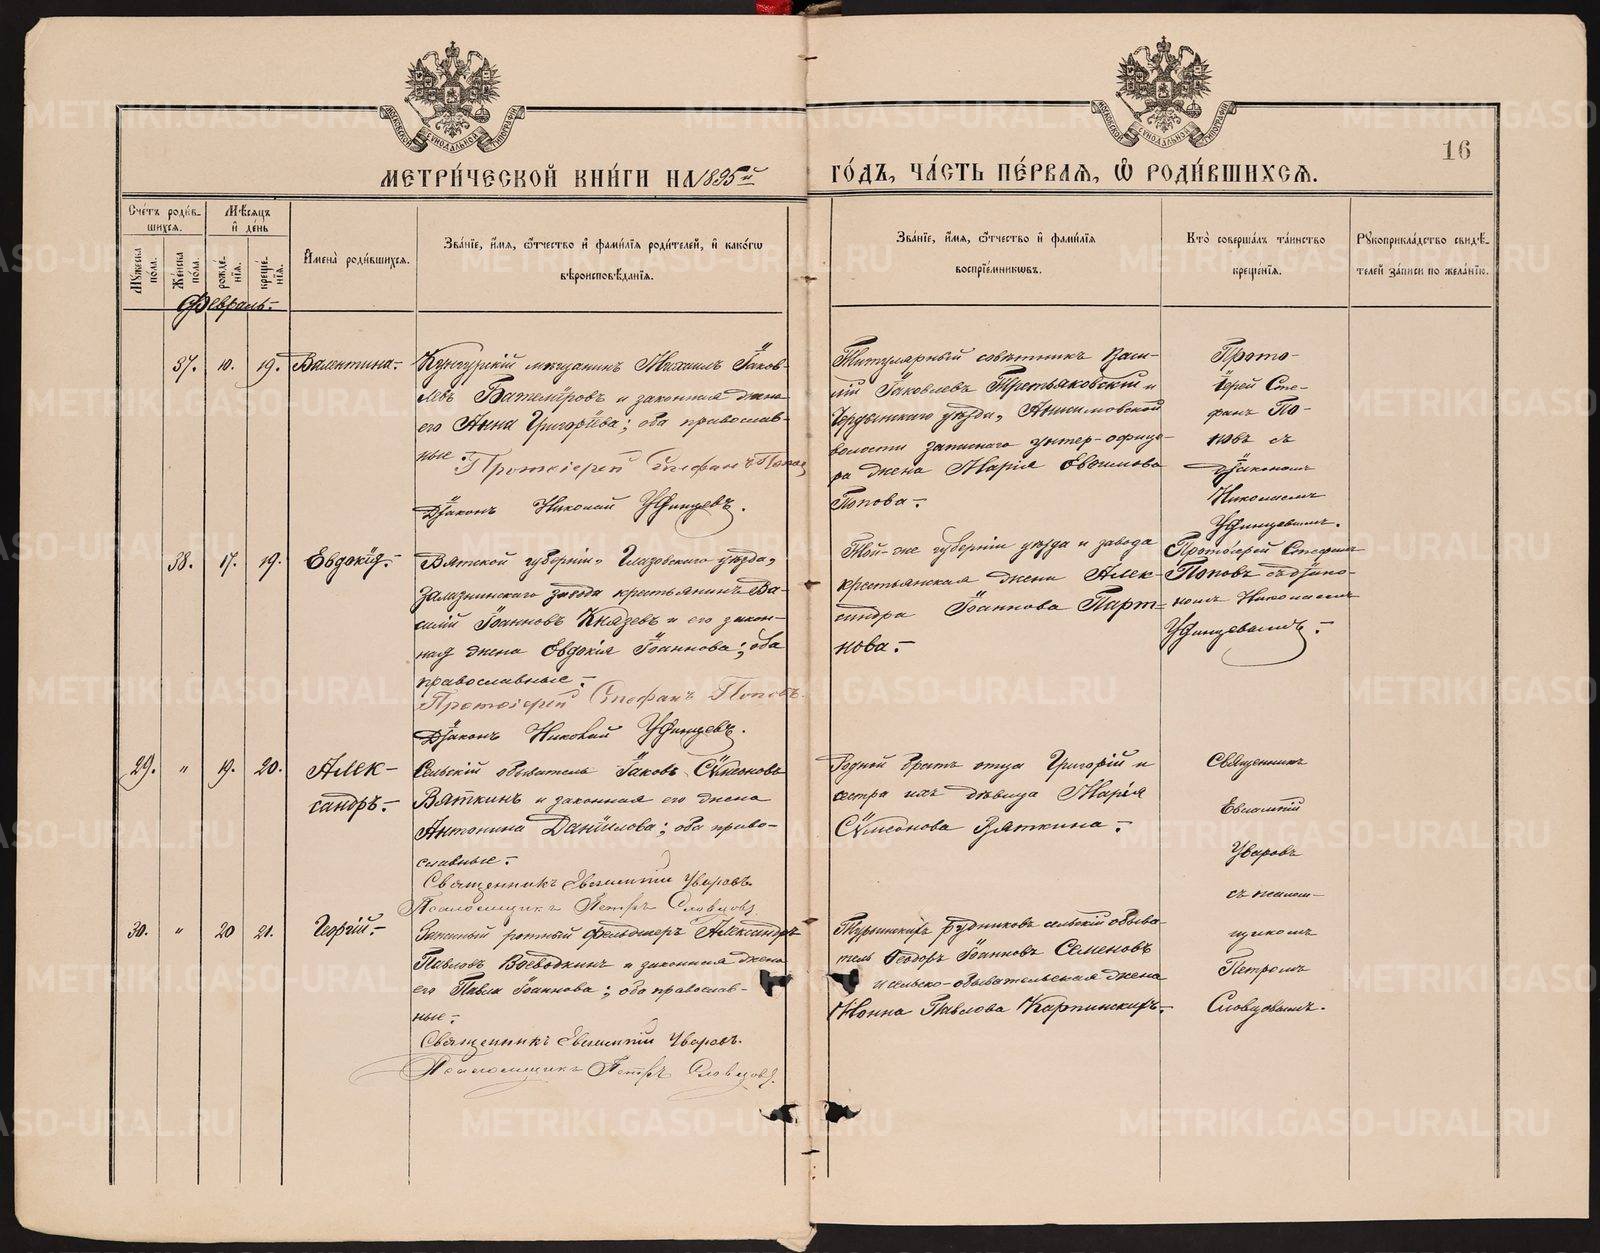 МЕТРИ́ЧЕСКОЙ КНИ́ГИ НА 1895й
ГО́ДЪ, ЧА́СТЬ ПЕ́РВАЯ, Ѽ РОДИ́ВШИХСѦ.
16
Сче́тъ роди́в-
шихся.
Мѣ́сяцъ
и҆ де́нь
Му́жеска
по́ла.
Же́нска
по́ла.
рожде́-
нїя.
креще́-
нїя.
И҆мена̀ роди́вшихся.
Зва́нїе, и҆́мя, ѻ҆́тчество и҆ фами́лїя роди́телей, и҆ како́гѡ
вѣроисповѣ́данїя.
Зва́нїе, и҆́мя, ѻ҆́тчество и҆ фами́лїя
воспрїе́мникѡвъ.
Кто̀ соверша́лъ та́инство
креще́нїя.
Рꙋкоприкла́дство свидѣ́-
телей за́писи по жела́нїю.
Февраль.
37. 10. 19. Валентина.
Кунгурскій мѣщанинъ Михаилъ Іаков-
левъ Бателіровъ и законная жена
его Анна Григоріева; оба православ-
ные. Протоіерей Стефанъ Попов
Діаконъ Николай Уфинцевъ.
Титулярный совѣтникъ Васи-
лій Іаковлевъ Третьяковскій и
Чердынскаго уѣзда, Анисимовской
волости запаснаго унтер-офице-
ра жена Марія Евѳимова
Попова.
Прото-
іерей Сте-
фанъ По-
повъ съ
діакономъ
Николаемъ
Уфинцевымъ.
38. 17. 19. Евдокія.
Вятской губерніи, Глазовскаго уѣзда,
Залазнинскаго завода крестьянинъ Ва-
силій Іоанновъ Князевъ и его закон-
ная жена Евдокія Іоаннова; оба
православные.
Протоіерей Стефанъ Поповъ.
Діаконъ Николай Уфинцевъ.
Той-же губерніи уѣзда и завода
крестьянская жена Алек-
сандра Іоаннова Парт-
нова.
Протоіерей Стефанъ
Поповъ съ діако-
номъ Николаемъ
Уфинцевымъ.
29. " 19. 20. Алек-
сандръ.
Сельскій обыватель Іаковъ Сѵмеоновъ
Вяткинъ и законная его жена
Антонина Даніилова; оба право-
славные.
Священникъ Евлампій Уваровъ.
Псаломщикъ Петръ Словцовъ
Родной братъ отца Григорій и
сестра ихъ дѣвица Марія
Сѵмеонова Вяткина.
Священникъ
Евлампій
Уваровъ
съ псалом-
щикомъ
Петромъ
Словцовымъ.
30. " 20 21. Георгій.
Запасный ротный фельдшеръ Александръ
Павловъ Воеводкинъ и законная жена
его Павла Іоаннова; оба православ-
ные.
Священникъ Евлампій Уваровъ.
Псаломщикъ Петръ Словцовъ.
Турьинскихъ рудниковъ сельскій обыва-
тель Ѳеодоръ Іоанновъ Семеновъ
и сельско-обывательская жена
Нонна Павлова Карпинскихъ.
METRIKI.GASO-URAL.RU